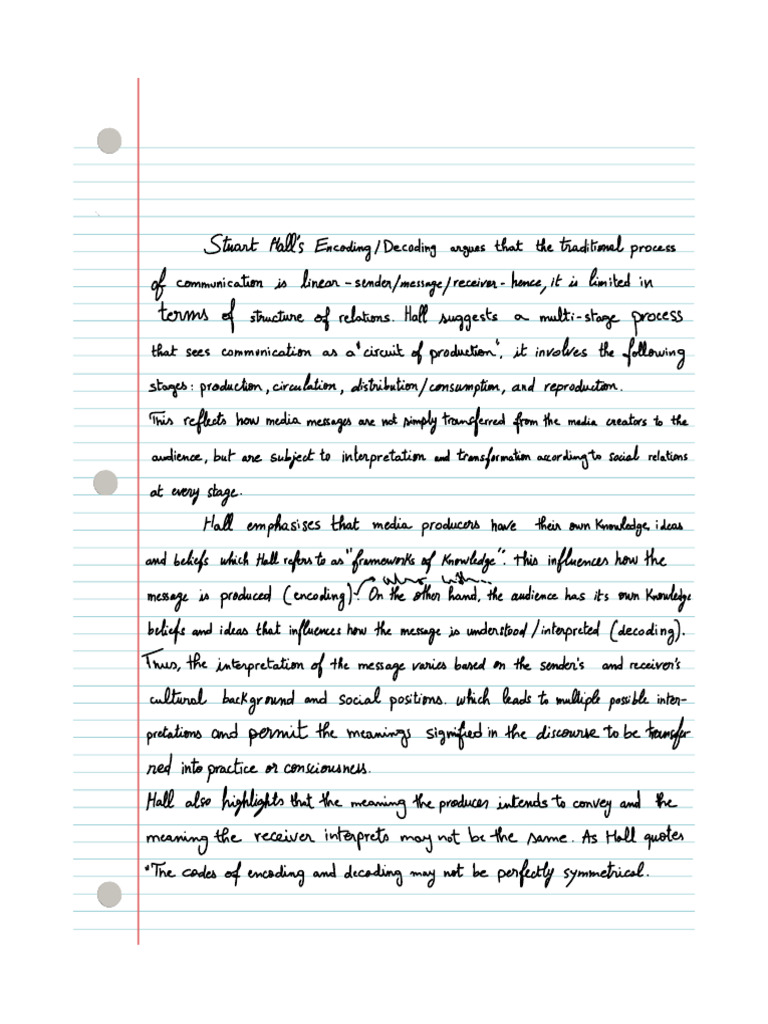 Stuart Hall's Encoding/Decoding argues that the traditional process
of communication is linear - sender/message/receiver - hence, it is limited in
terms of structure of relations. Hall suggests a multi-stage process
that sees communication as a "circuit of production", it involves the following
stages: production, circulation, distribution/consumption, and reproduction.
This reflects how media messages are not simply transferred from the media creators to the
audience, but are subject to interpretation and transformation according to social relations
at every stage.
Hall emphasises that media producers have their own Knowledge, ideas
and beliefs which Hall refers to as "frameworks of Knowledge". This influences how the
message is produced (encoding). On the other hand, the audience has its own Knowledge
beliefs and ideas that influences how the message is understood/interpreted (decoding).
Thus, the interpretation of the message varies based on the sender's and receiver's
cultural background and social positions. which leads to multiple possible inter-
pretations and permit the meanings signified in the discourse to be transfer
red into practice or consciousness.
Hall also highlights that the meaning the producer intends to convey and the
meaning the receiver interprets may not be the same. As Hall quotes
"The codes of encoding and decoding may not be perfectly symmetrical.